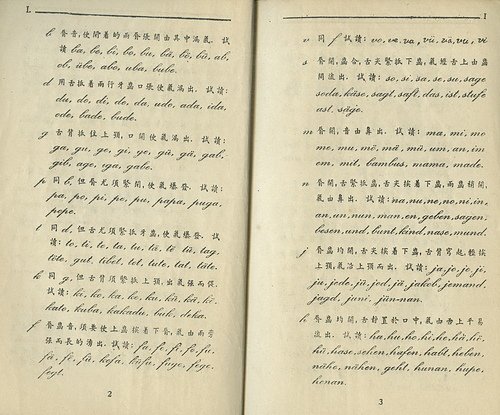 I.
b 脣音, 使 着的兩脣張開由其中滿氣. 試
讀 ba, be, bi, bo, bu, bä, bö, bü, ab,
ob, abo, uba, bube.
d 用舌抵着兩行牙齒口張使氣滿出. 試讀:
du, do, di, de, da, udo, ada, ida,
ode, bade, bude.
g 舌背抵住上顎, 口開使氣滿出. 試讀:
ga, gu, go, gi, ge, gö, gü, gä,
gib, age, uga, gabe.
p 同 b, 但脣尤須緊閉, 使氣爆發. 試讀:
pa, po, pi, pe, pu, papa, puga,
pepe.
t 同 d, 但舌尤須緊抵牙齒, 使氣爆發. 試
讀: to, ti, te, ta, tu, tä, tö, tü, tag,
töte, gut, tibet, tot, tute, tat, täte.
k 同 g, 但舌背須緊抵上顎, 出氣張而猛.
試讀: ki, ko, ka, ke, ku, kü, kä, kö,
kate, kuba, kakadu, buk, deka.
f 脣齒音, 須要使上齒挨着下脣, 氣由兩旁
張而長的湧出. 試讀: fa, fe, fi, fo, fu,
fä, fö, fü, kofa, fuge, fege,
fogt.
2
I
v 同 f 試讀: vo, ve, va, vü, vä, vu, vi
s 脣開, 齒合, 舌尖緊抵下齒, 氣經舌上由齒
間流出. 試讀: so, si, sa, se, su, sage
soda, käse, sagt, saft, das, ist, stufe
ast, säge.
m 脣閉, 音由鼻出. 試讀: ma, mi, mo
me, mu, mö, mä, mü, um, an, im
em, mit, bambus, mama, made.
n 脣開, 舌緊抵齒, 舌尖挨着下齒, 兩齒稍開,
氣由鼻出. 試讀: na, nu, ne, no, ni, in,
an, un, nun, man, en, geben, sagen,
besen, und, bunt, kind, nase, mund.
j 脣齒均開, 舌尖挨着下齒, 舌背穹起輕挨
上顎, 氣沿上顎而出. 試讀: ja, jo, je, ji,
ju, jede, jü, jod, jä, jakob, jemand,
jagd, juni, jün-nan.
h 脣齒均開, 舌靜置於口中, 氣由舌上平易
流出. 試讀: ha, hu, ho, hi, he, hä, hö,
hü, hase, sehen, hafen, habt, heben,
nähe, nähen, geht, hunan, hupe,
honan.
3